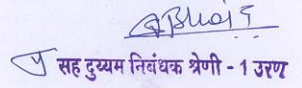 सह दुय्यम निबंधक श्रेणी - 1 उरण